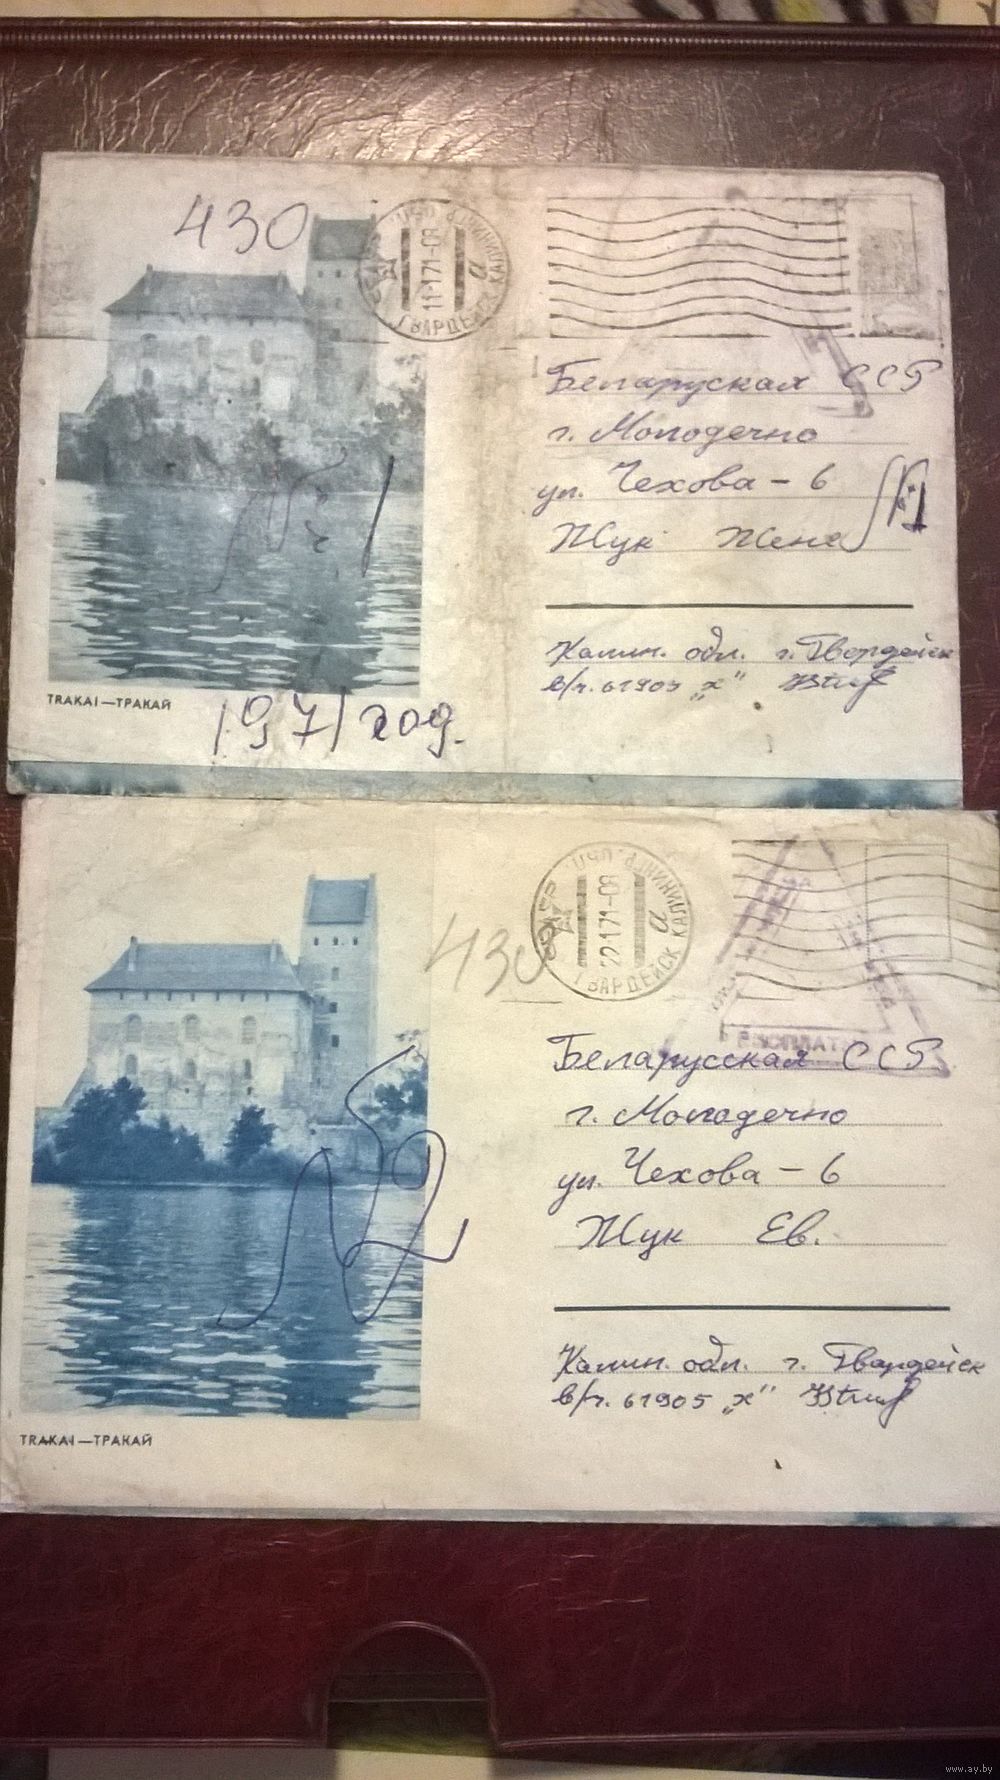 430
СССР ГВАРДЕЙСК КАЛИНИНГР. ОБЛ.
11-1.71-08
а
Беларуская ССР
г. Молодечно
ул. Чехова - 6
Жук Жене
Калин. обл. г. Гвардейск
в/ч. 61905 „х"
TRAKAI — ТРАКАЙ
1971 год.
430
СССР ГВАРДЕЙСК КАЛИНИНГР. ОБЛ.
22-1.71-08
а
БЕСПЛАТ
Беларусская ССР
г. Молодечно
ул. Чехова - 6
Жук Ев.
Калин. обл. г. Гвардейск
в/ч. 61905 „х"
TRAKAI — ТРАКАЙ
www.ay.by